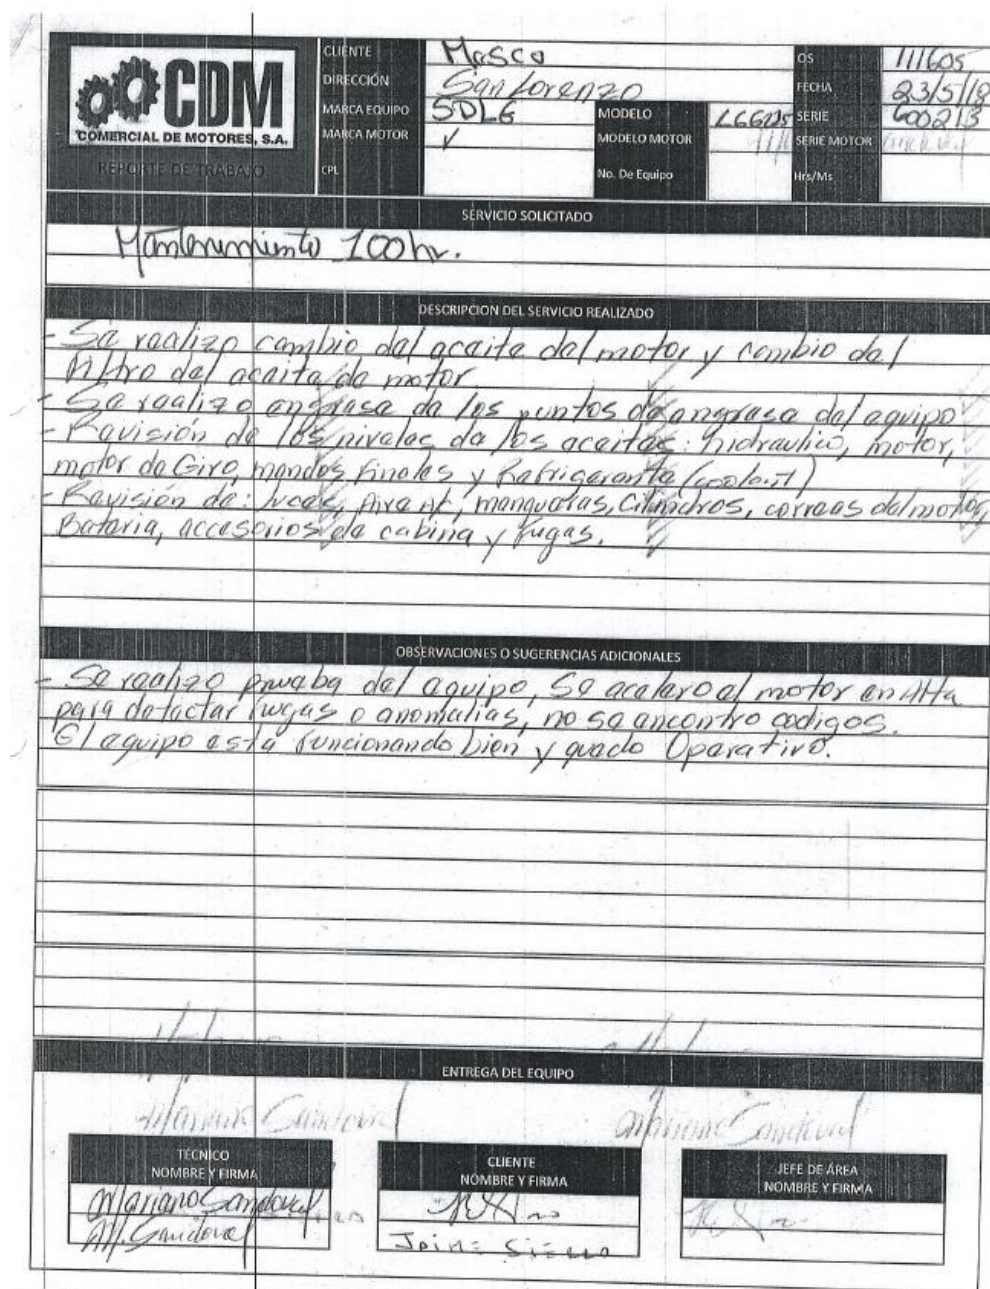 CDM
COMERCIAL DE MOTORES, S.A.
REPORTE DE TRABAJO
CLIENTE Mosco
DIRECCIÓN San Lorenzo
MARCA EQUIPO SDLG
MARCA MOTOR
CPL
MODELO
MODELO MOTOR
No. De Equipo
OS 111605
FECHA 23/5/18
SERIE 600213
SERIE MOTOR
Hrs/Ms
SERVICIO SOLICITADO
Mantenimiento 100hr.
DESCRIPCION DEL SERVICIO REALIZADO
- Se realizo cambio del aceite del motor y cambio del
filtro del aceite de motor
- Se realizo engrase de los puntos de engrase del equipo
- Revisión de los niveles de los aceites: hidraulico, motor,
motor de Giro, mandos finales y Refrigerante
- Revisión de: luces, Aire Ac, mangueras, Cilindros, correas del motor,
Bateria, accesorios de cabina y fugas.
OBSERVACIONES O SUGERENCIAS ADICIONALES
- Se realizo prueba del equipo, Se acelero el motor en Alta
para detectar fugas o anomalias, no se encontro codigos.
El equipo esta funcionando bien y quedo Operativo.
ENTREGA DEL EQUIPO
Mariano Sandoval Mariano Sandoval
TÉCNICO
NOMBRE Y FIRMA
Mariano Sandoval
M. Sandoval
CLIENTE
NOMBRE Y FIRMA
Jaime
JEFE DE ÁREA
NOMBRE Y FIRMA